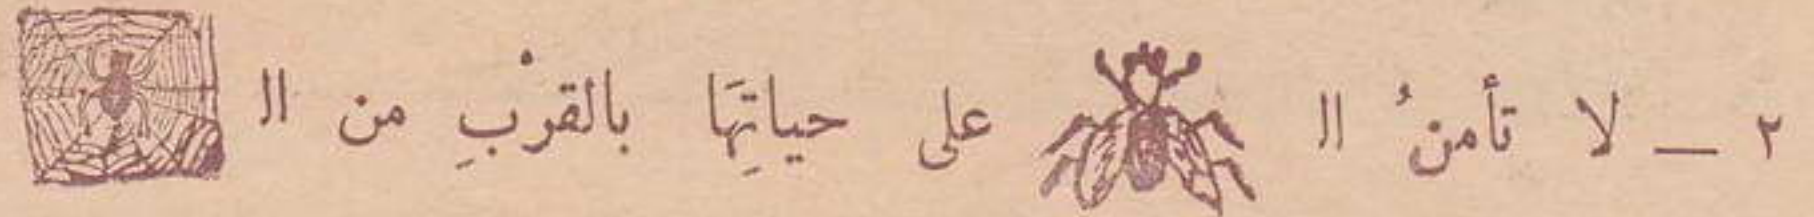 ٢ — لا تأمنُ الـ على حياتِهَا بالقرْبِ من الـ